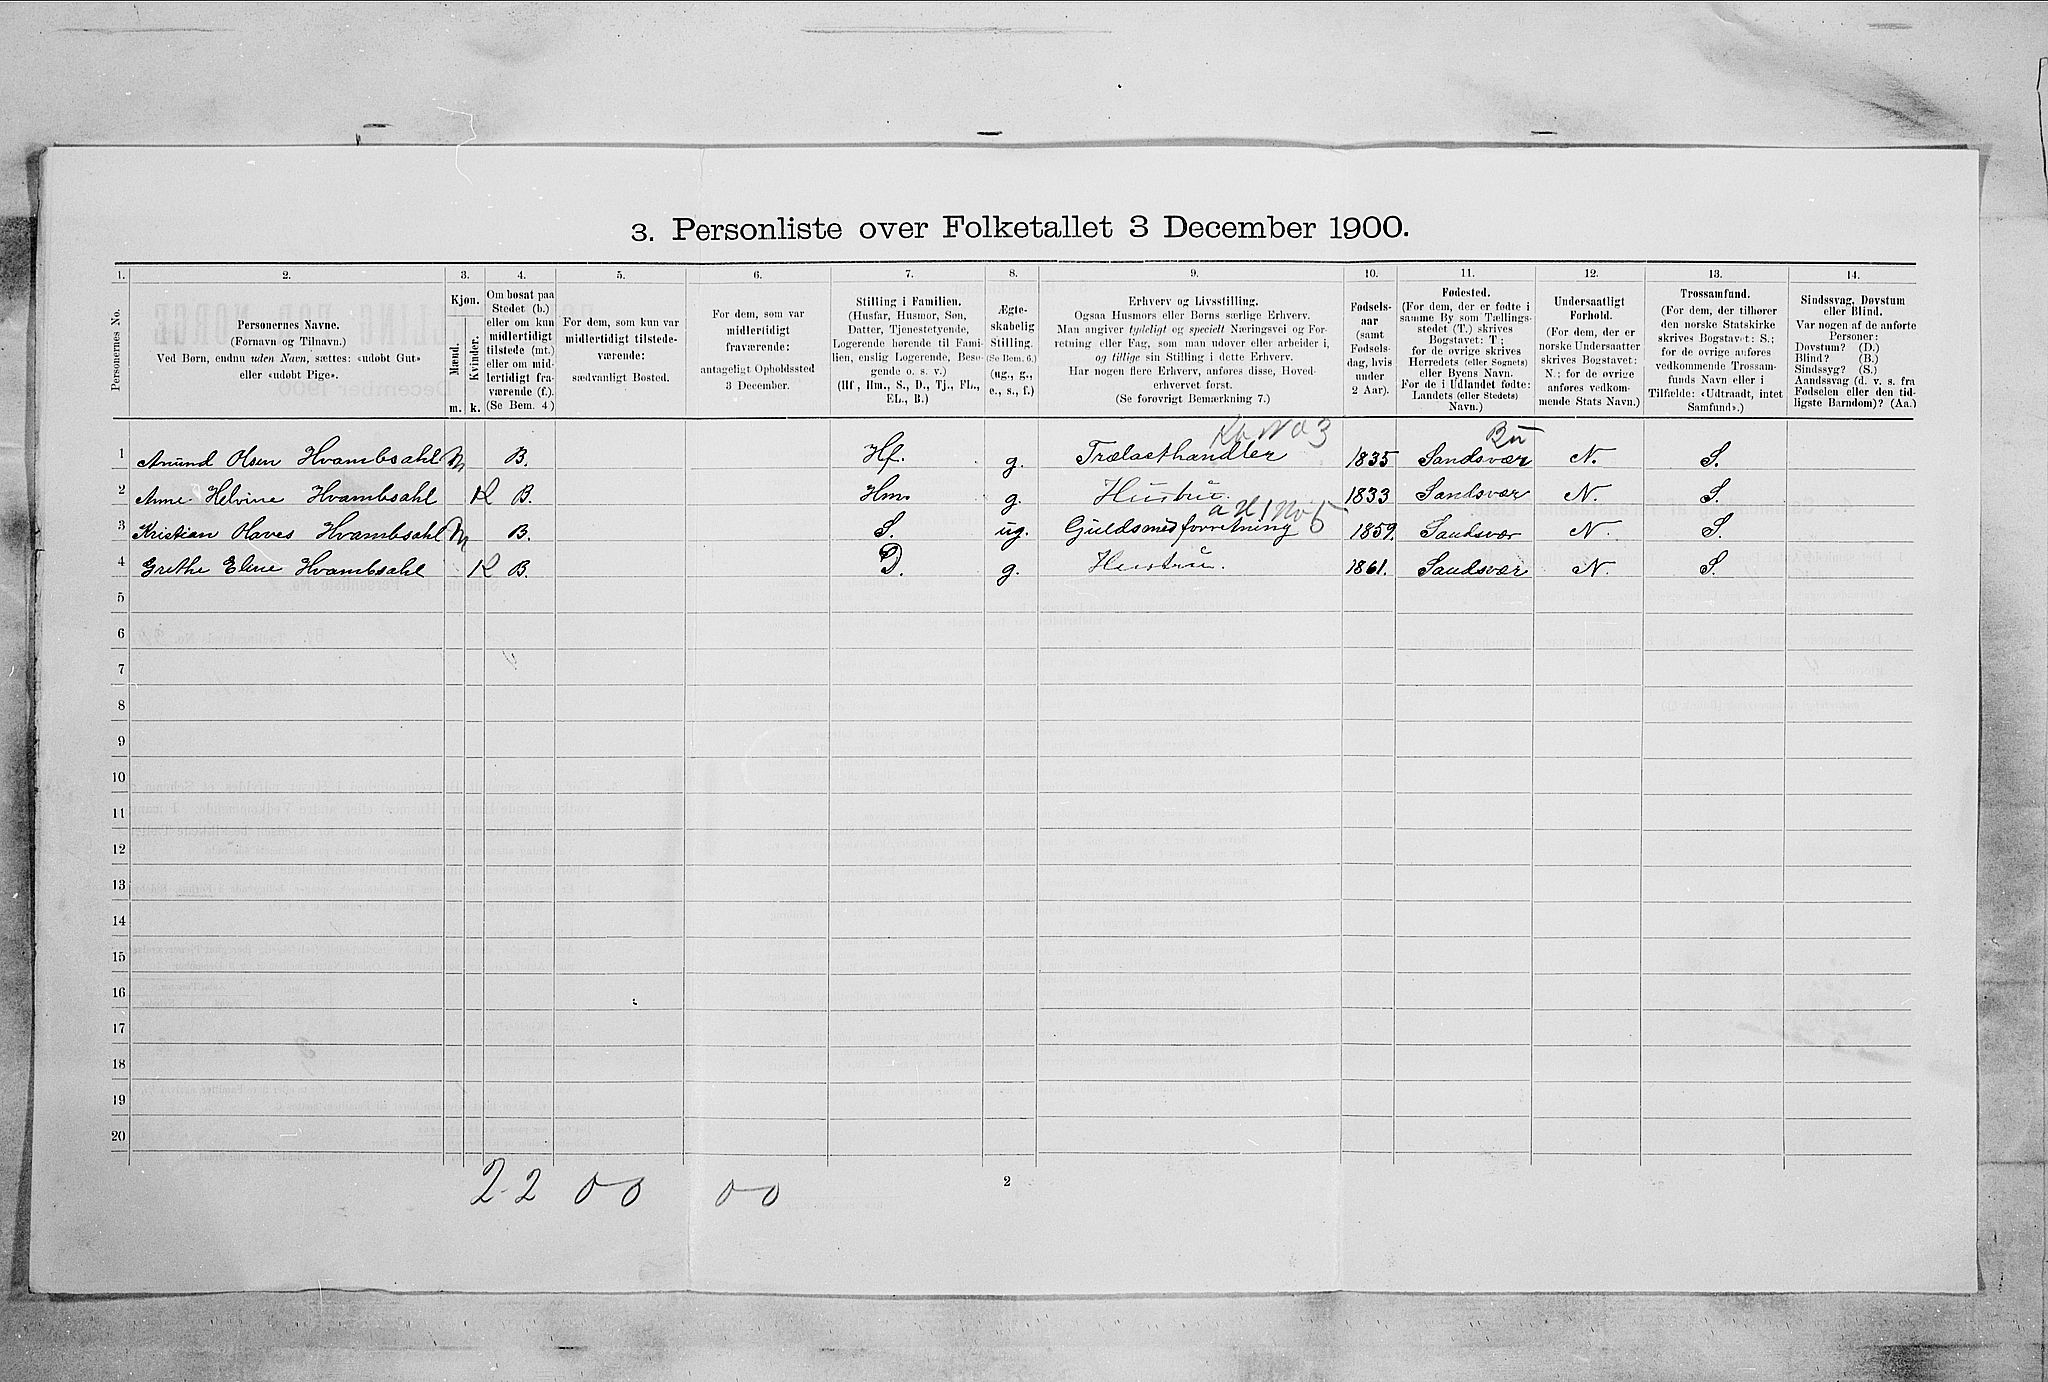 3. Personliste over Folketallet 3 December 1900.
1. 2. 3. 4. 5. 6. 7. 8. 9. 10. 11. 12. 13. 14.
Personernes No.
Personernes Navne.
(Fornavn og Tilnavn.)
Ved Børn, endnu uden Navn, sættes: «udobt Gut»
eller «udobt Pige».
Kjøn.
Mænd.
Kvinder.
m. k.
Om bosat paa
Stedet (b.)
eller om kun
midlertidigt
tilstede (mt.)
eller om mid-
lertidigt fra-
værende (f.).
(Se Bem. 4)
For dem, som kun var
midlertidigt tilstede-
værende:
sædvanligt Bosted.
For dem, som var
midlertidigt
fraværende:
antageligt Opholdssted
3 December.
Stilling i Familien.
(Husfar, Husmor, Søn,
Datter, Tjenestetyende,
Logerende hørende til Fami-
lien, enslig Logerende, Besø-
gende o. s. v.)
(Hf, Hm., S., D., Tj., FL.,
EL., B.)
Ægte-
skabelig
Stilling.
(Se Bem. 6.)
(ug., g.,
e., s., f.)
Erhverv og Livsstilling.
Ogsaa Husmors eller Børns særlige Erhverv.
Man angiver tydeligt og specielt Næringsvei og For-
retning eller Fag, som man udover eller arbeider i,
og tillige sin Stilling i dette Erhverv.
Har nogen flere Erhverv, anføres disse, Hoved-
erhvervet først.
(Se forøvrigt Bemærkning 7.)
Fødsels-
aar
(samt
Fødsels-
dag, hvis
under
2 Aar).
Fødested.
(For dem, der er fødte i
samme By som Tællings-
stedet (T.) skrives
Bogstavet: T;
for de øvrige skrives
Herredets (eller Sognets)
eller Byens Navn.
For de i Udlandet fødte:
Landets (eller Stedets)
Navn.)
Undersaatligt
Forhold.
(For dem, der er
norske Undersaatter
skrives Bogstavet:
N.; for de øvrige
anføres vedkom-
mende Stats Navn.)
Trossamfund.
(For dem, der tilhører
den norske Statskirke
skrives Bogstavet: S.;
for de øvrige anføres
vedkommende Trossam-
funds Navn eller i
Tilfælde: «Udtraadt, intet
Samfund».)
Sindssvag, Døvstum
eller Blind.
Var nogen af de anførte
Personer:
Døvstum? (D.)
Blind? (B.)
Sindssyg? (S.)
Aandssvag (d. v. s. fra
Fødselen eller den tid-
ligste Barndom)? (Aa.)
Bu
1 Anund Olsen Hvambsahl M B. Hf. g. Trælasthandler 1835 Sandsvær N. S.
2 Anne Helvine Hvambsahl K B. Hm. g. Hustru. 1833 Sandsvær N. S.
3 Kristian Olaves Hvambsahl M B. S. ug. Guldsmedforretning 1859. Sandsvær N. S.
4 Grethe Eline Hvambsahl K B. D. g. Hustru. 1861. Sandsvær N. S.
5
6
7
8
9
10
11
12
13
14
15
16
17
18
19
20
2 2 0 0 0 0
2